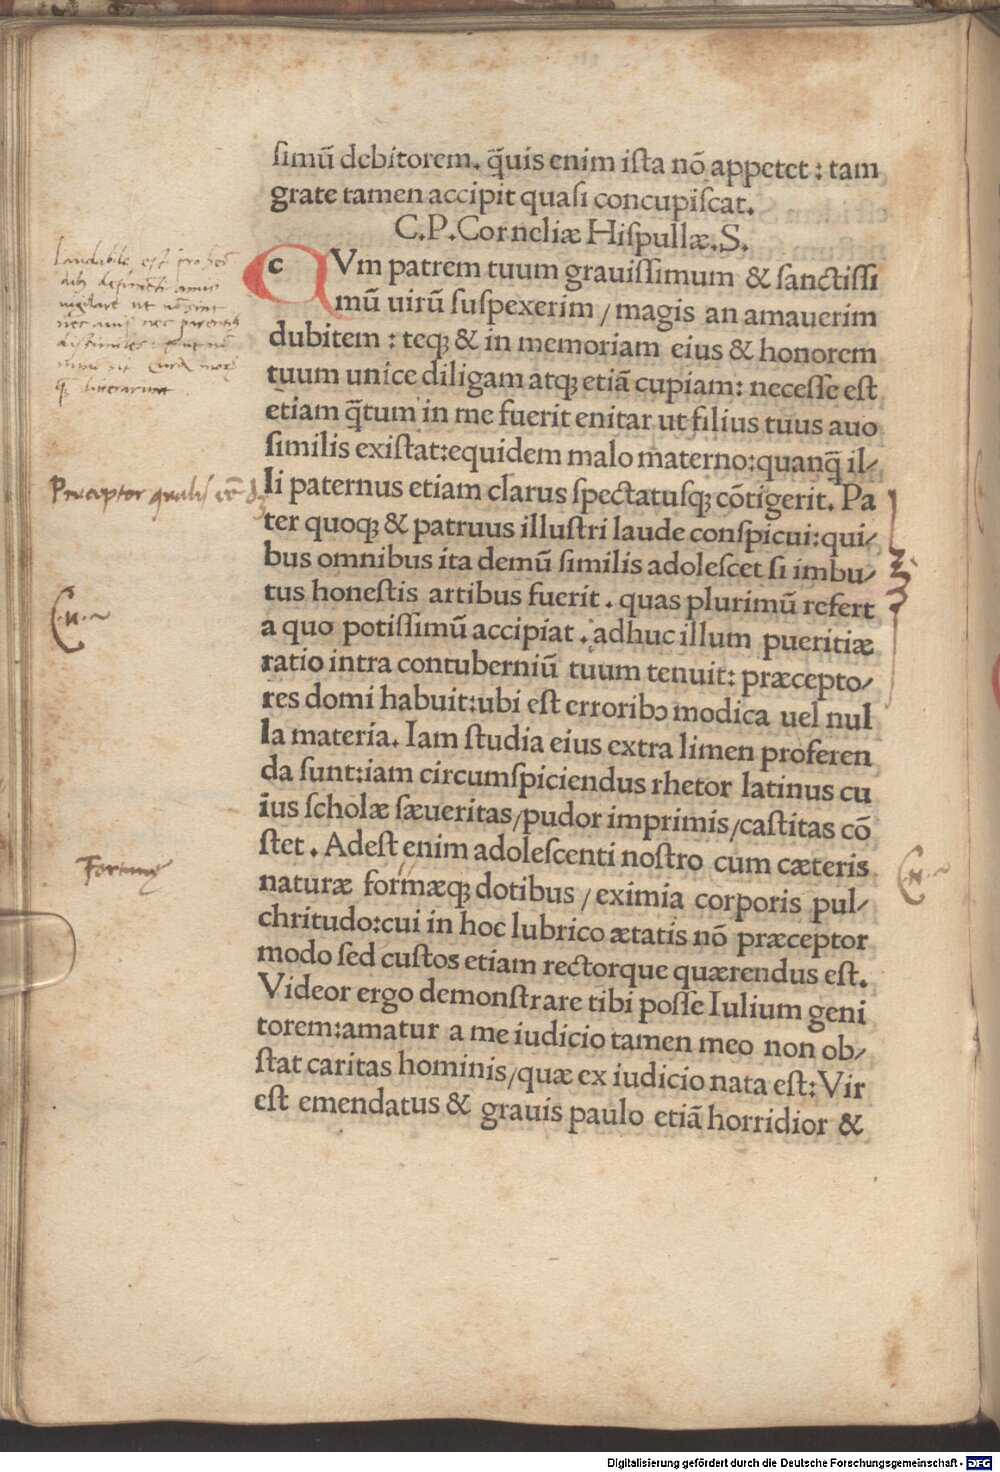 simū debitorem. q̄uis enim ista nō appetet : tam
grate tamen accipit quasi concupiscat.
C.P.Corneliæ Hispullæ.S.
c Vm patrem tuum grauissimum & sanctissi
mū uirū suspexerim / magis an amauerim
dubitem : teqꝫ & in memoriam eius & honorem
tuum unice diligam atqꝫ etiā cupiam: necesse est
etiam q̄tum in me fuerit enitar ut filius tuus auo
similis existat:equidem malo materno:quanq̄ il/
li paternus etiam clarus spectatusqꝫ cōtigerit. Pa
ter quoqꝫ & patruus illustri laude conspicui:qui/
bus omnibus ita demū similis adolescet si imbu/
tus honestis artibus fuerit . quas plurimū refert
a quo potissimū accipiat . adhuc illum pueritiæ
ratio intra contuberniū tuum tenuit: præcepto/
res domi habuit:ubi est erroribꝰ modica uel nul
la materia. Iam studia eius extra limen proferen
da sunt:iam circumspiciendus rhetor latinus cu
ius scholæ sæueritas/pudor imprimis/castitas cō
stet . Adest enim adolescenti nostro cum cæteris
naturæ formæqꝫ dotibus / eximia corporis pul/
chritudo:cui in hoc lubrico ætatis nō præceptor
modo sed custos etiam rectorque quærendus est.
Videor ergo demonstrare tibi posse Iulium geni
torem:amatur a me iudicio tamen meo non ob/
stat caritas hominis/quæ ex iudicio nata est:Vir
est emendatus & grauis paulo etiā horridior &
Laudabile est
nec
litterarum
Preceptor qualis
Fortune
Digitalisierung gefördert durch die Deutsche Forschungsgemeinschaft - DFG